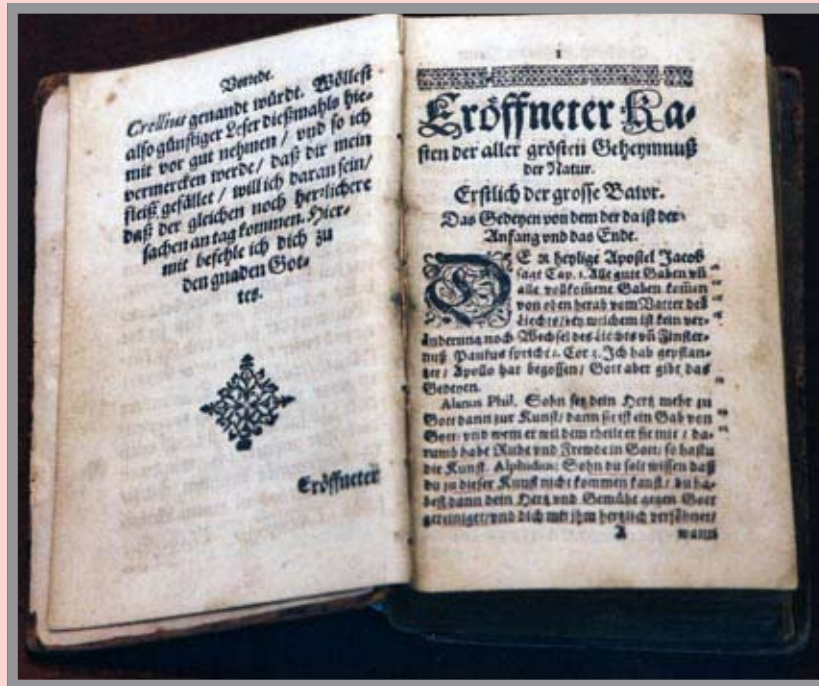 Vorrede.
Crellius genandt würdt. Wöllest
also günstiger Leser dießmahls hie-
mit vor gut nehmen / vnd so ich
vermercken werde / daß dir mein
fleiß gefället / will ich daran sein /
daß der gleichen noch herrlichere
sachen an tag kommen. Hier-
mit befehle ich dich zu
den gnaden Got-
tes.
Eröffneter
1
Eröffneter Ka-
sten der aller grösten Geheymnuß
der Natur.
Erstlich der grosse Bawr.
Das Gedeyen von dem der da ist der
Anfang vnd das Ende.
DEr heylige Apostel Jacob
sagt Cap. 1. Alle gute Gaben vñ
alle vollkom̃ene Gaben kom̃en
von oben herab vom Vatter deß
Liechts / bey welchem ist kein ver-
änderung noch Wechsel des Liechts vñ Finster-
nuß Paulus spricht 1. Cor 3. Ich hab gepflan-
tzet / Apollo hat begossen / Gott aber gibt das
Gedeyen.
Phil. Sohn setz dein Hertz mehr zu
Gott dann zur Kunst / dann sie ist ein Gab von
Gott / vnd wem er wil dem theilet er sie mit / da-
rumb habe Ruhe vnd Frewde in Gott / so hastu
die Kunst. Alphidius: Sohn du solt wissen daß
du zu dieser Kunst nicht kommen kanst / du ha-
best dann dein Hertz vnd Gemühte gegen Gott
gereiniget / vnd dich mit ihm hertzlich versöhnet /
A wann